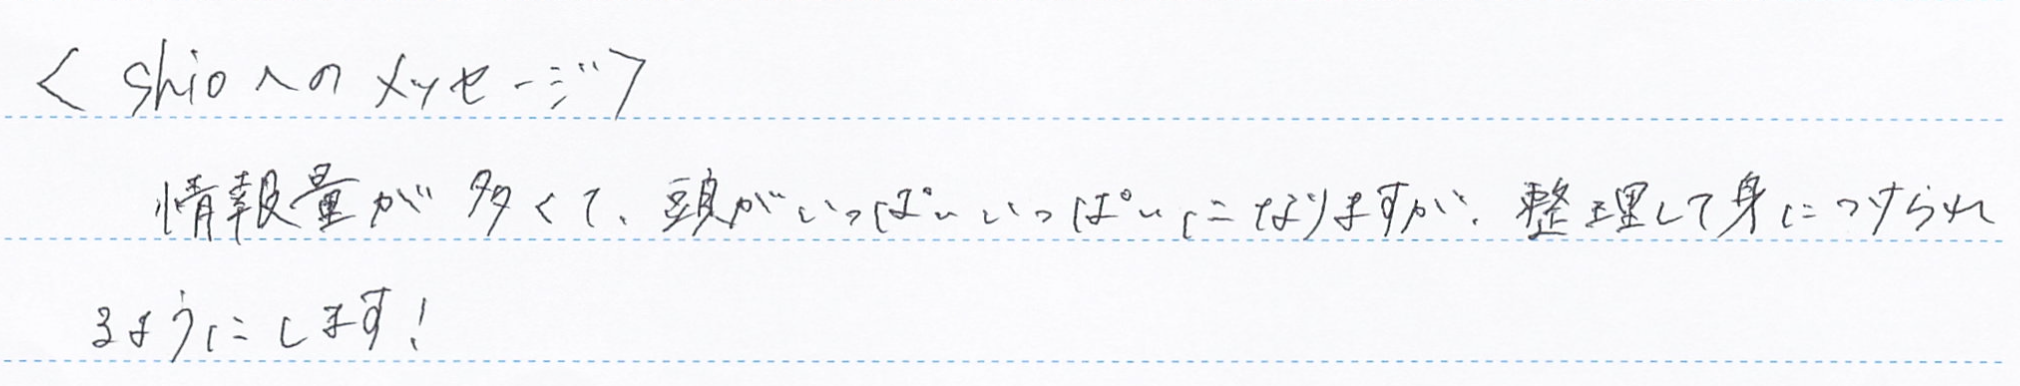 <shioへのメッセージ>
情報量が多くて、頭がいっぱいいっぱいになりますが、整理して身につけられ
るようにします!